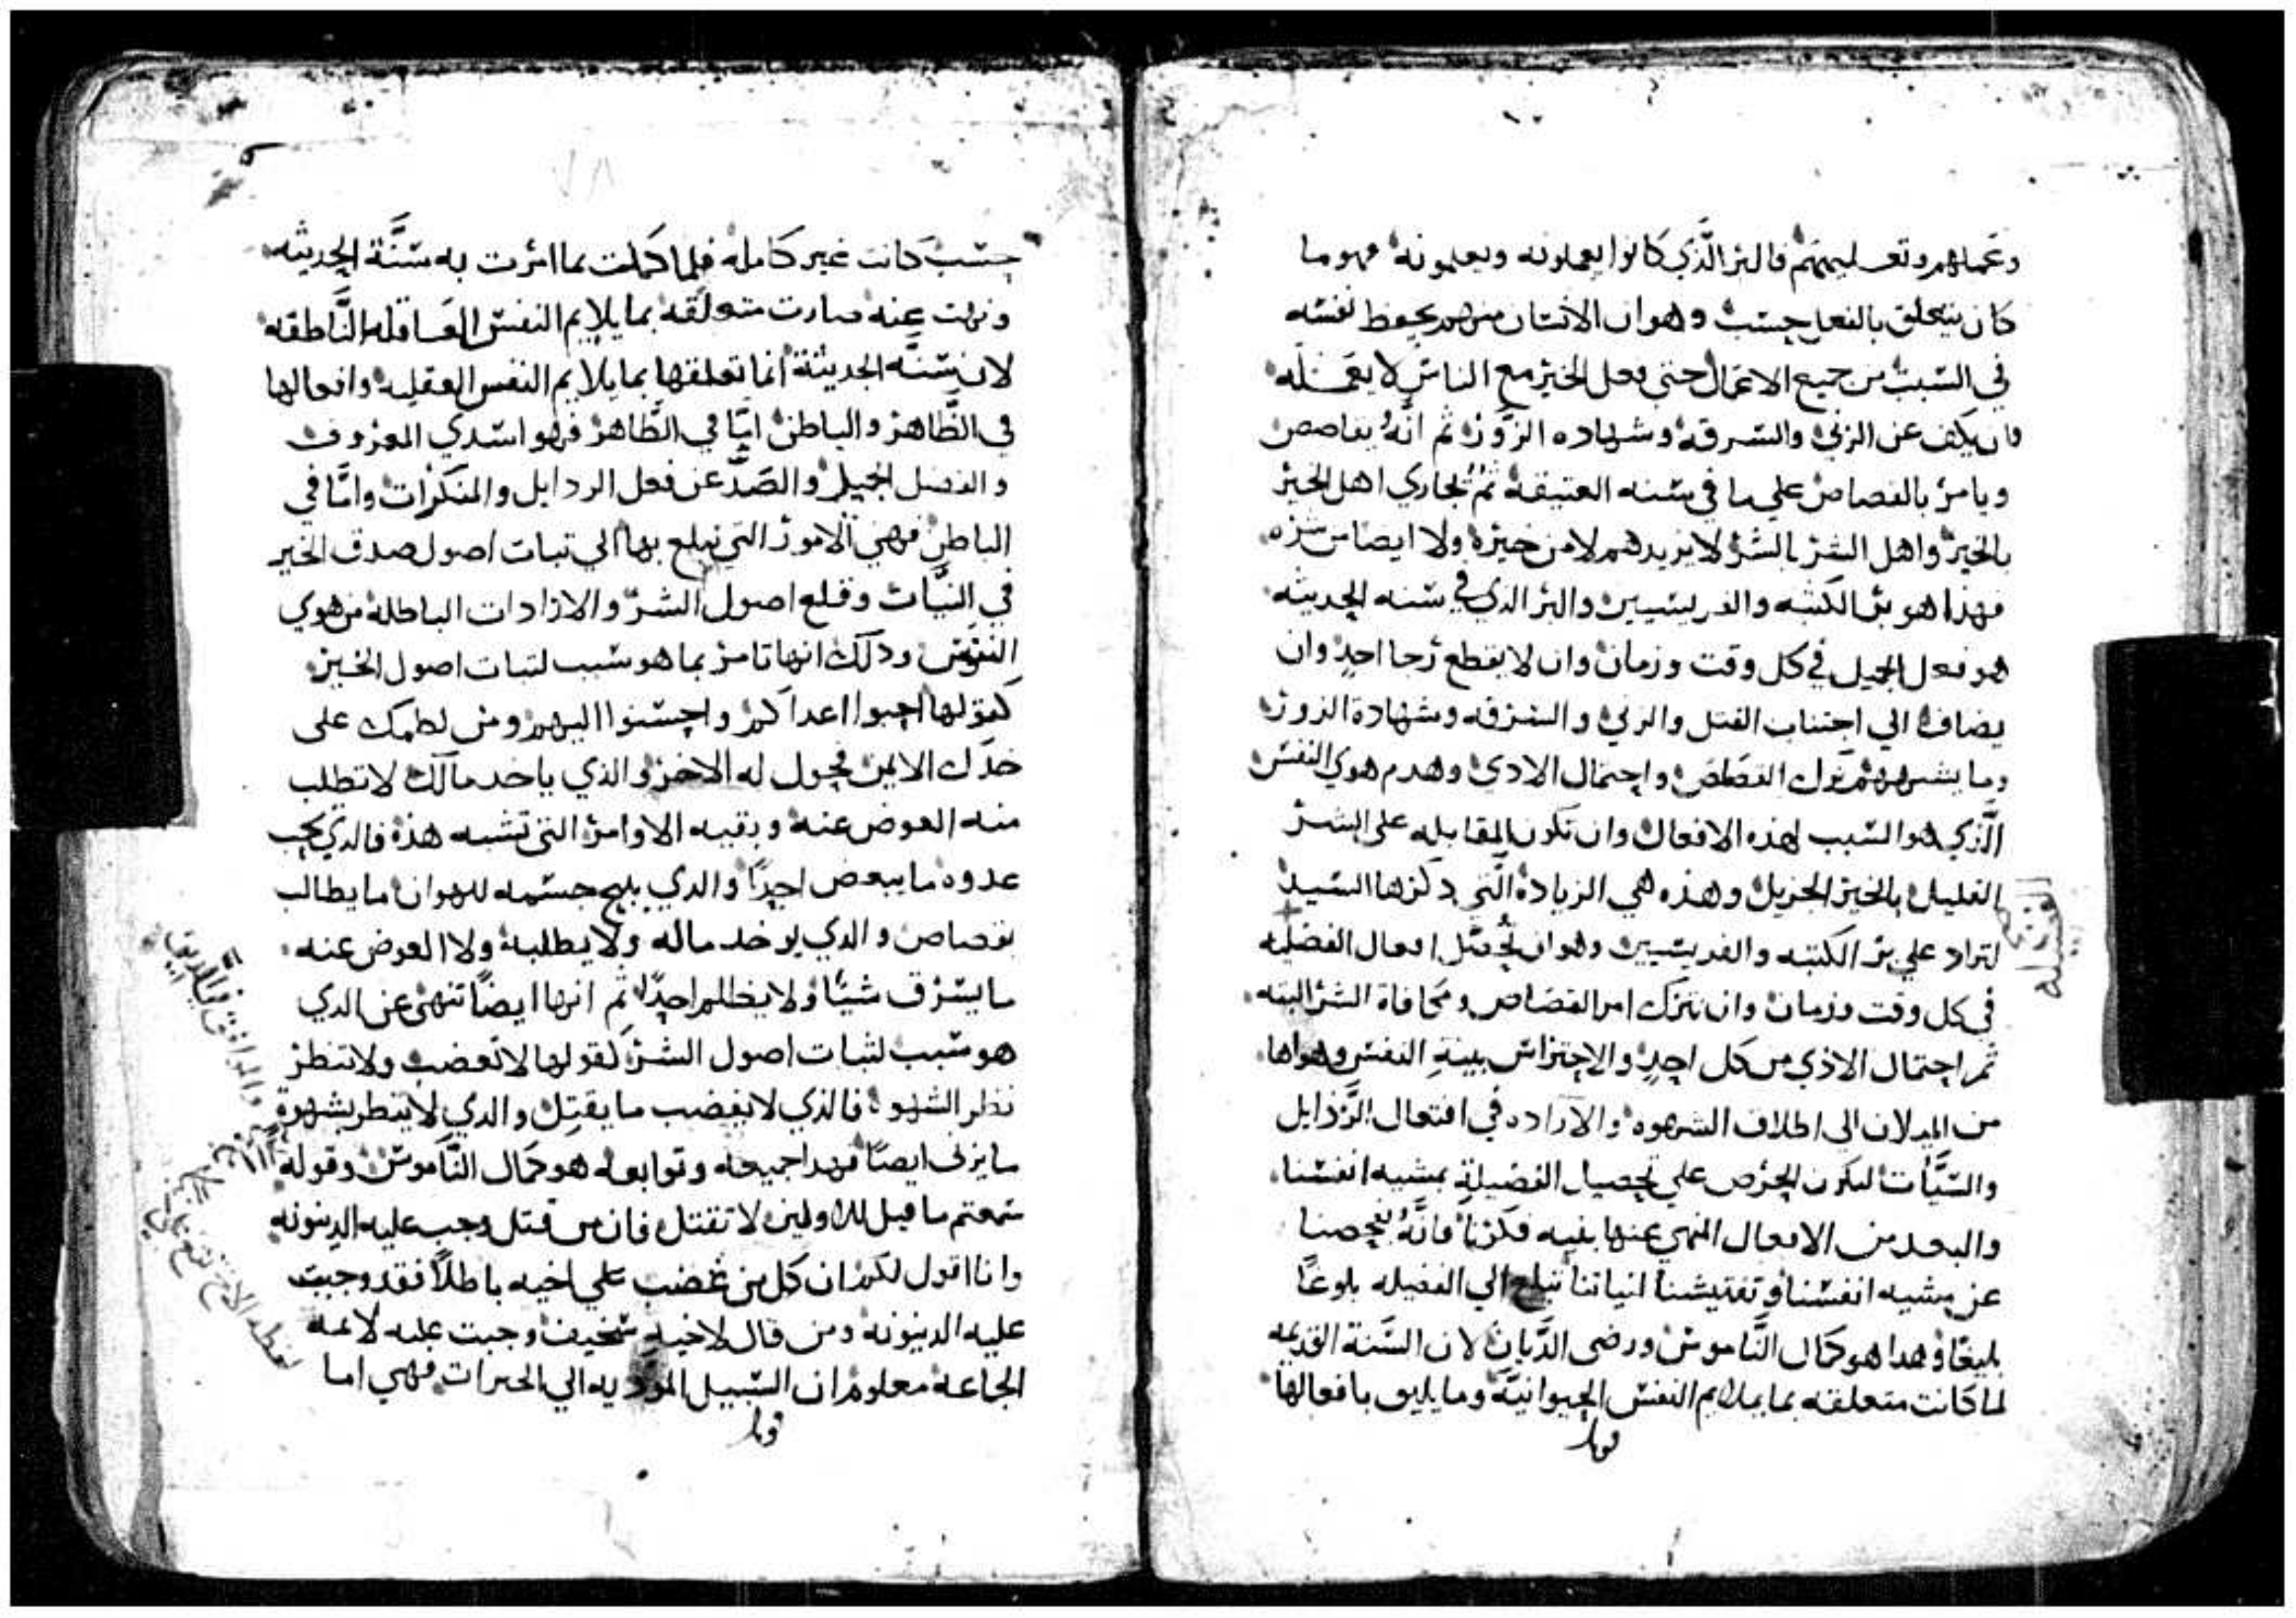 وعملهم وتعليمهم فالبر الَّذي كانوا يعملونه ويعلمونه فهو ما
كان يتعلق بالفعل حسب وهو ان الانسان منهم يحفظ نفسه
في السبت من جميع الاعمال حتى فعل الخير مع الناس لا يفعله
وان يكف عن الزنى والسرقه وشهاده الزور ثم انَّهُ يقاصص
ويامر بالقصاص علي ما في سنه العتيقه ثم يجاري اهل الخير
بالخير واهل الشر بالشر لا يزيدهم لا من خيره ولا ايضا من شره
فهذا هو بر الكتبه والفريسيين والبر الذي في سنه الحديثه
هو فعل الجميل في كل وقت وزمان وان لا يقطع رجا احدٍ وان
يضاف الي اجتناب القتل والزنى والسرقه وشهادة الزور
وما يشبههم ترك القصاص واحتمال الادي وهدم هوي النفس
الَّذي هو السبب لهذه الافعال وان تكون المقابله على الشر
القليل بالخير الجزيل وهذه هي الزيادة الَّتي ذكرها السيد
لتزاد علي بر الكتبه والفريسيين وهو ان تُحصَّل افعال الفضيله
في كل وقت وزمان وان نترك امر القصاص ومحافاة الشر البته
ثم احتمال الاذي من كل احدٍ والاحتراس بينةِ النفس وهواها
من الميلان الى اطلاق الشهوه والاراده في افتعال الرَّذايل
والسَّيّأت ليكون الحرص علي تحصيل الفضيلةِ بمشيه انفسنا
والبعد من الافعال المنهي عنها بغيه فكرنا فانَّهُ بفحصنا
عن مشيه انفسنا وتفتيشنا انياتنا نبلغ الي الفضيله بلوغًا
بليغًا وهدا هو كمال النَّاموس ورضى الدَّيان لان السَّنة القديمه
لما كانت متعلقه بما يلايم النفس الحيوانيَّه وما يليق بافعالها
الفضيله
حسب كانت غير كامله فلما كملت بما امرت به سنَّة الحديثه
ونهت عنه صارت متعلقه بما يلايم النفس العاقله النَّاطقه
لان سنَّه الحديثة انما تعلقها بما يلايم النفس العقليه وافعالها
في الظَّاهر والباطن امَّا في الظَّاهر فهو اسدي المعروف
والفضل الجميل والصَدّ عن فعل الردايل والمنكرات وامَّا في
الباطن فهي الامور التي نبلغ بها الي تبات اصول صدق الخير
في النيَّات وقلع اصول الشرّ والارادات الباطلة من هوي
النفوس ودلك انها تامر بما هو سبب لتبات اصول الخير
كقولها احبوا اعداكم واحسنوا اليهم ومن لطمك على
خدّك الايمن فحول له الاخر والذي ياخد مالك لا تطلب
منه العوض عنه وبقيه الاوامر التي تشبه هذه فالدي يحب
عدوه ما يبغض احدًا والدي يبيح جسمه للهوان ما يطالب
بقصاص والدي يوخد ماله ولا يطلبه ولا العوض عنه
ما يسرق شيًا ولا يظلم احدًا ثم انها ايضًا تنهى عن الدي
هو سبب لثبات اصول الشر كقولها لا تغضب ولا تنظر
نظر الشهوه فالذي لا يغضب ما يقتل والدي لا ينطر بشهوةٍ
ما يزنى ايضًا فهدا جميعه وتوابعه هو كمال النَّاموس وقوله
سمعتم ما قيل للاولين لا تقتل فان من قتل وجب عليه الدينونه
وانا اقول لكم ان كل من غضب علي اخيه باطلًا فقد وجبت
عليه الدينونه ومن قال لاخيهِ سخيف وجبت عليه لائمه
الجماعه معلوم ان السبيل الموديه الي الخيرات فهي اما